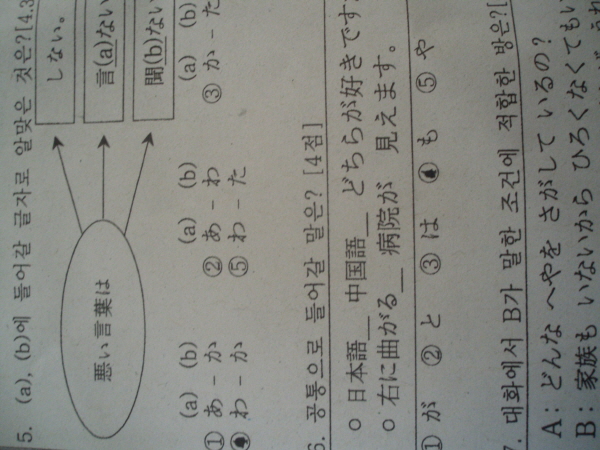 5. (a), (b)에 들어갈 글자로 알맞은 것은?[4.3
悪い言葉は
しない。
言(a)ない
聞(b)ない
(a) (b) (a) (b) (a) (b)
① あ - か ② あ - わ ③ か - た
わ - か ⑤ わ - た
6. 공통으로 들어갈 말은? [4점]
○ 日本語__ 中国語__ どちらが好きです
○ 右に曲がる__ 病院が 見えます。
① が ② と ③ は も ⑤ や
7. 대화에서 B가 말한 조건에 적합한 방은?[
A: どんな へやを さがして いるの?
B: 家族も いないから ひろくなくても